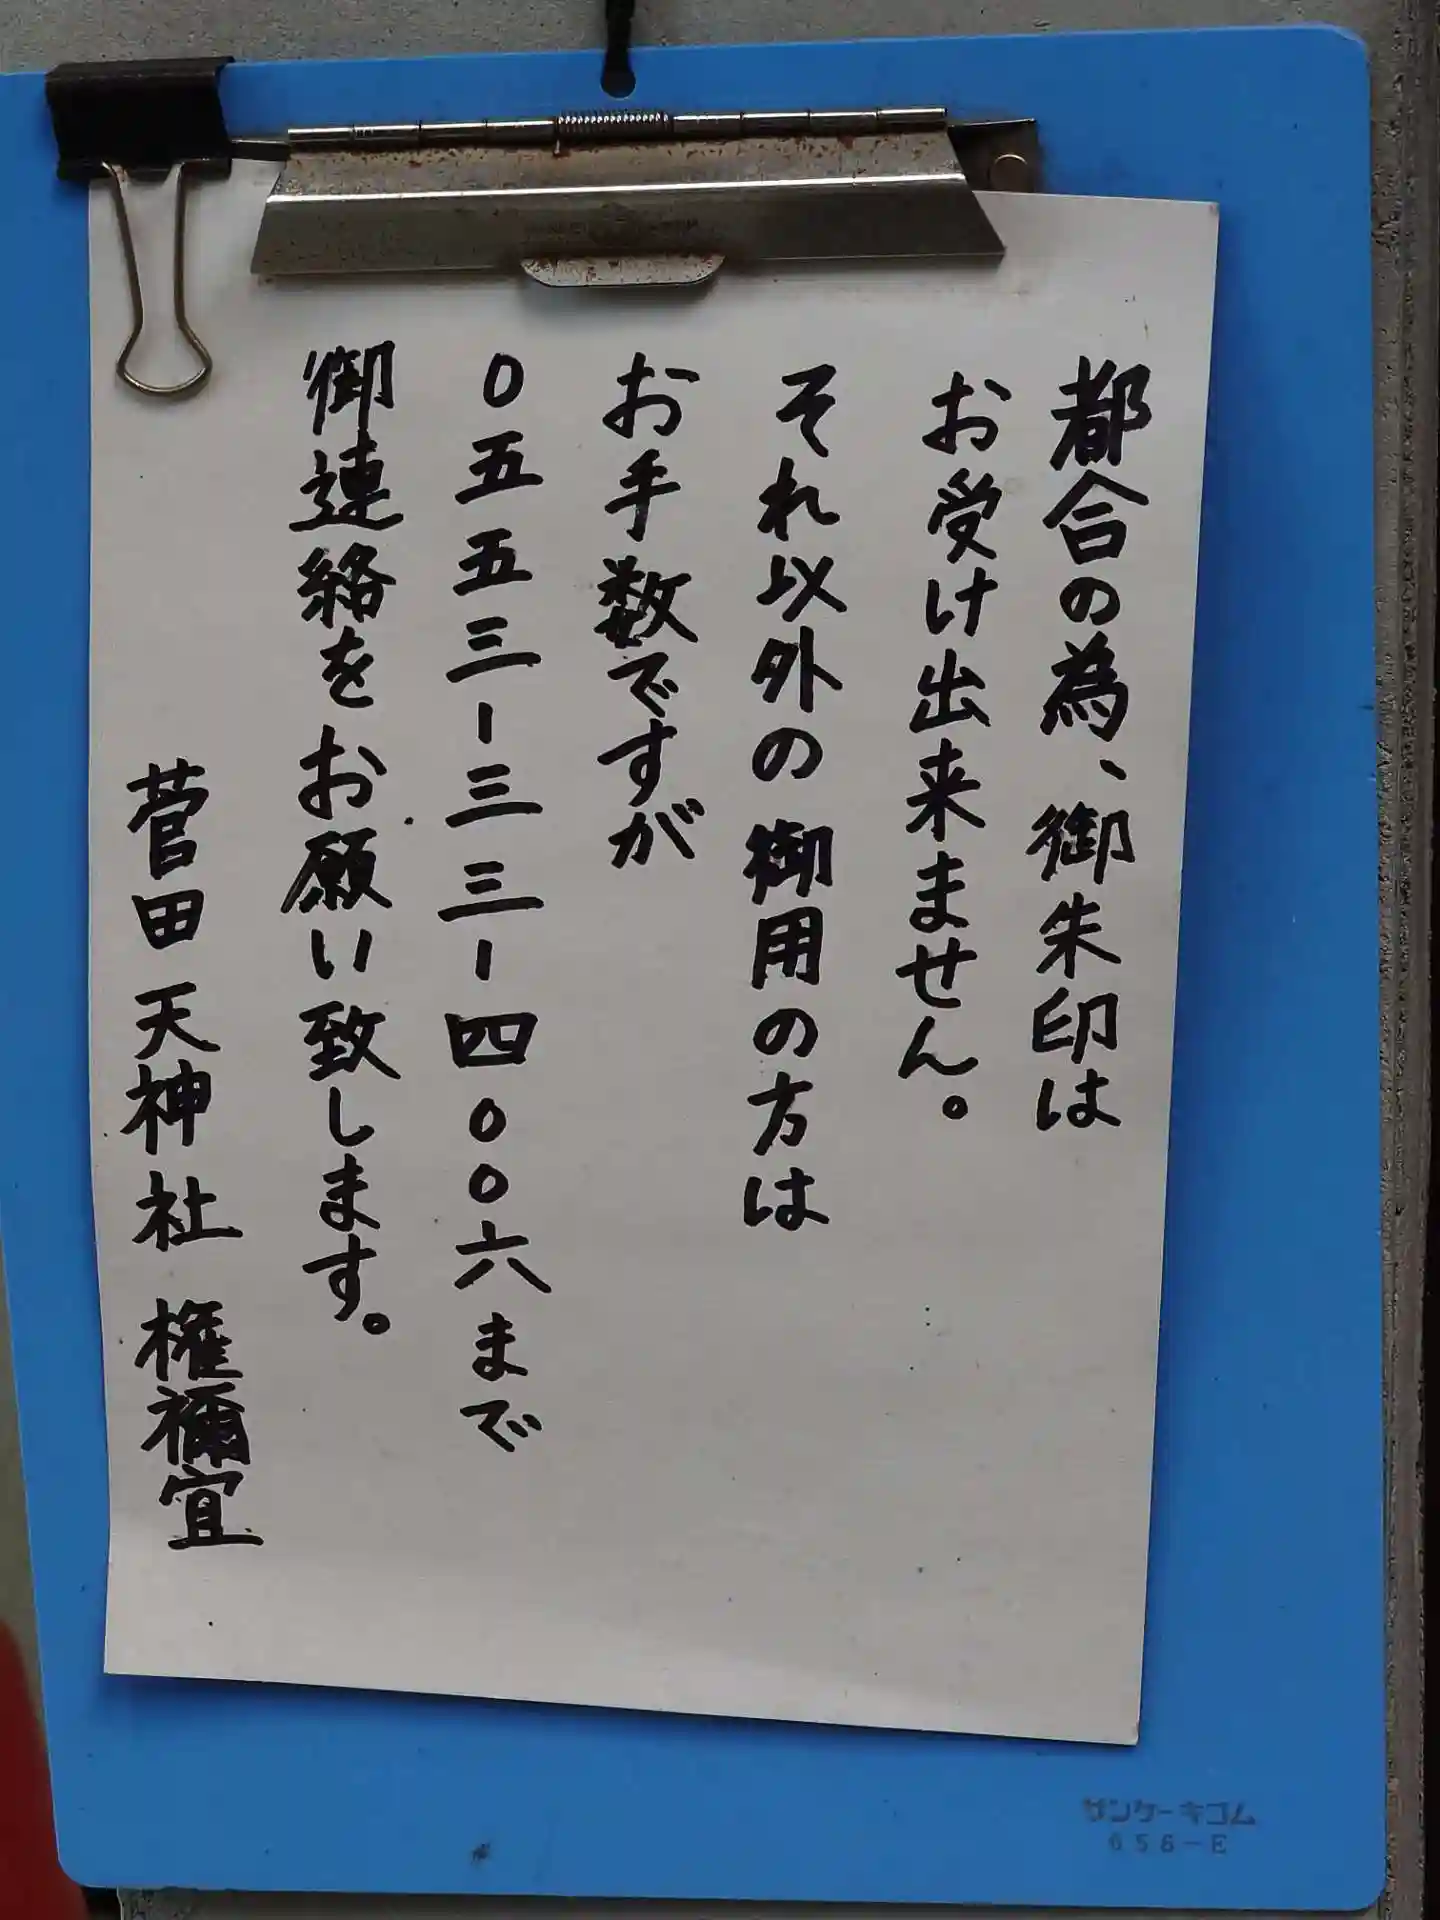 都合の為、御朱印は
お受け出来ません。
それ以外の御用の方は
お手数ですが
0五五三-三三-四00六まで
御連絡をお願い致します。
菅田天神社 権禰宜
サンケーキコム
656-E